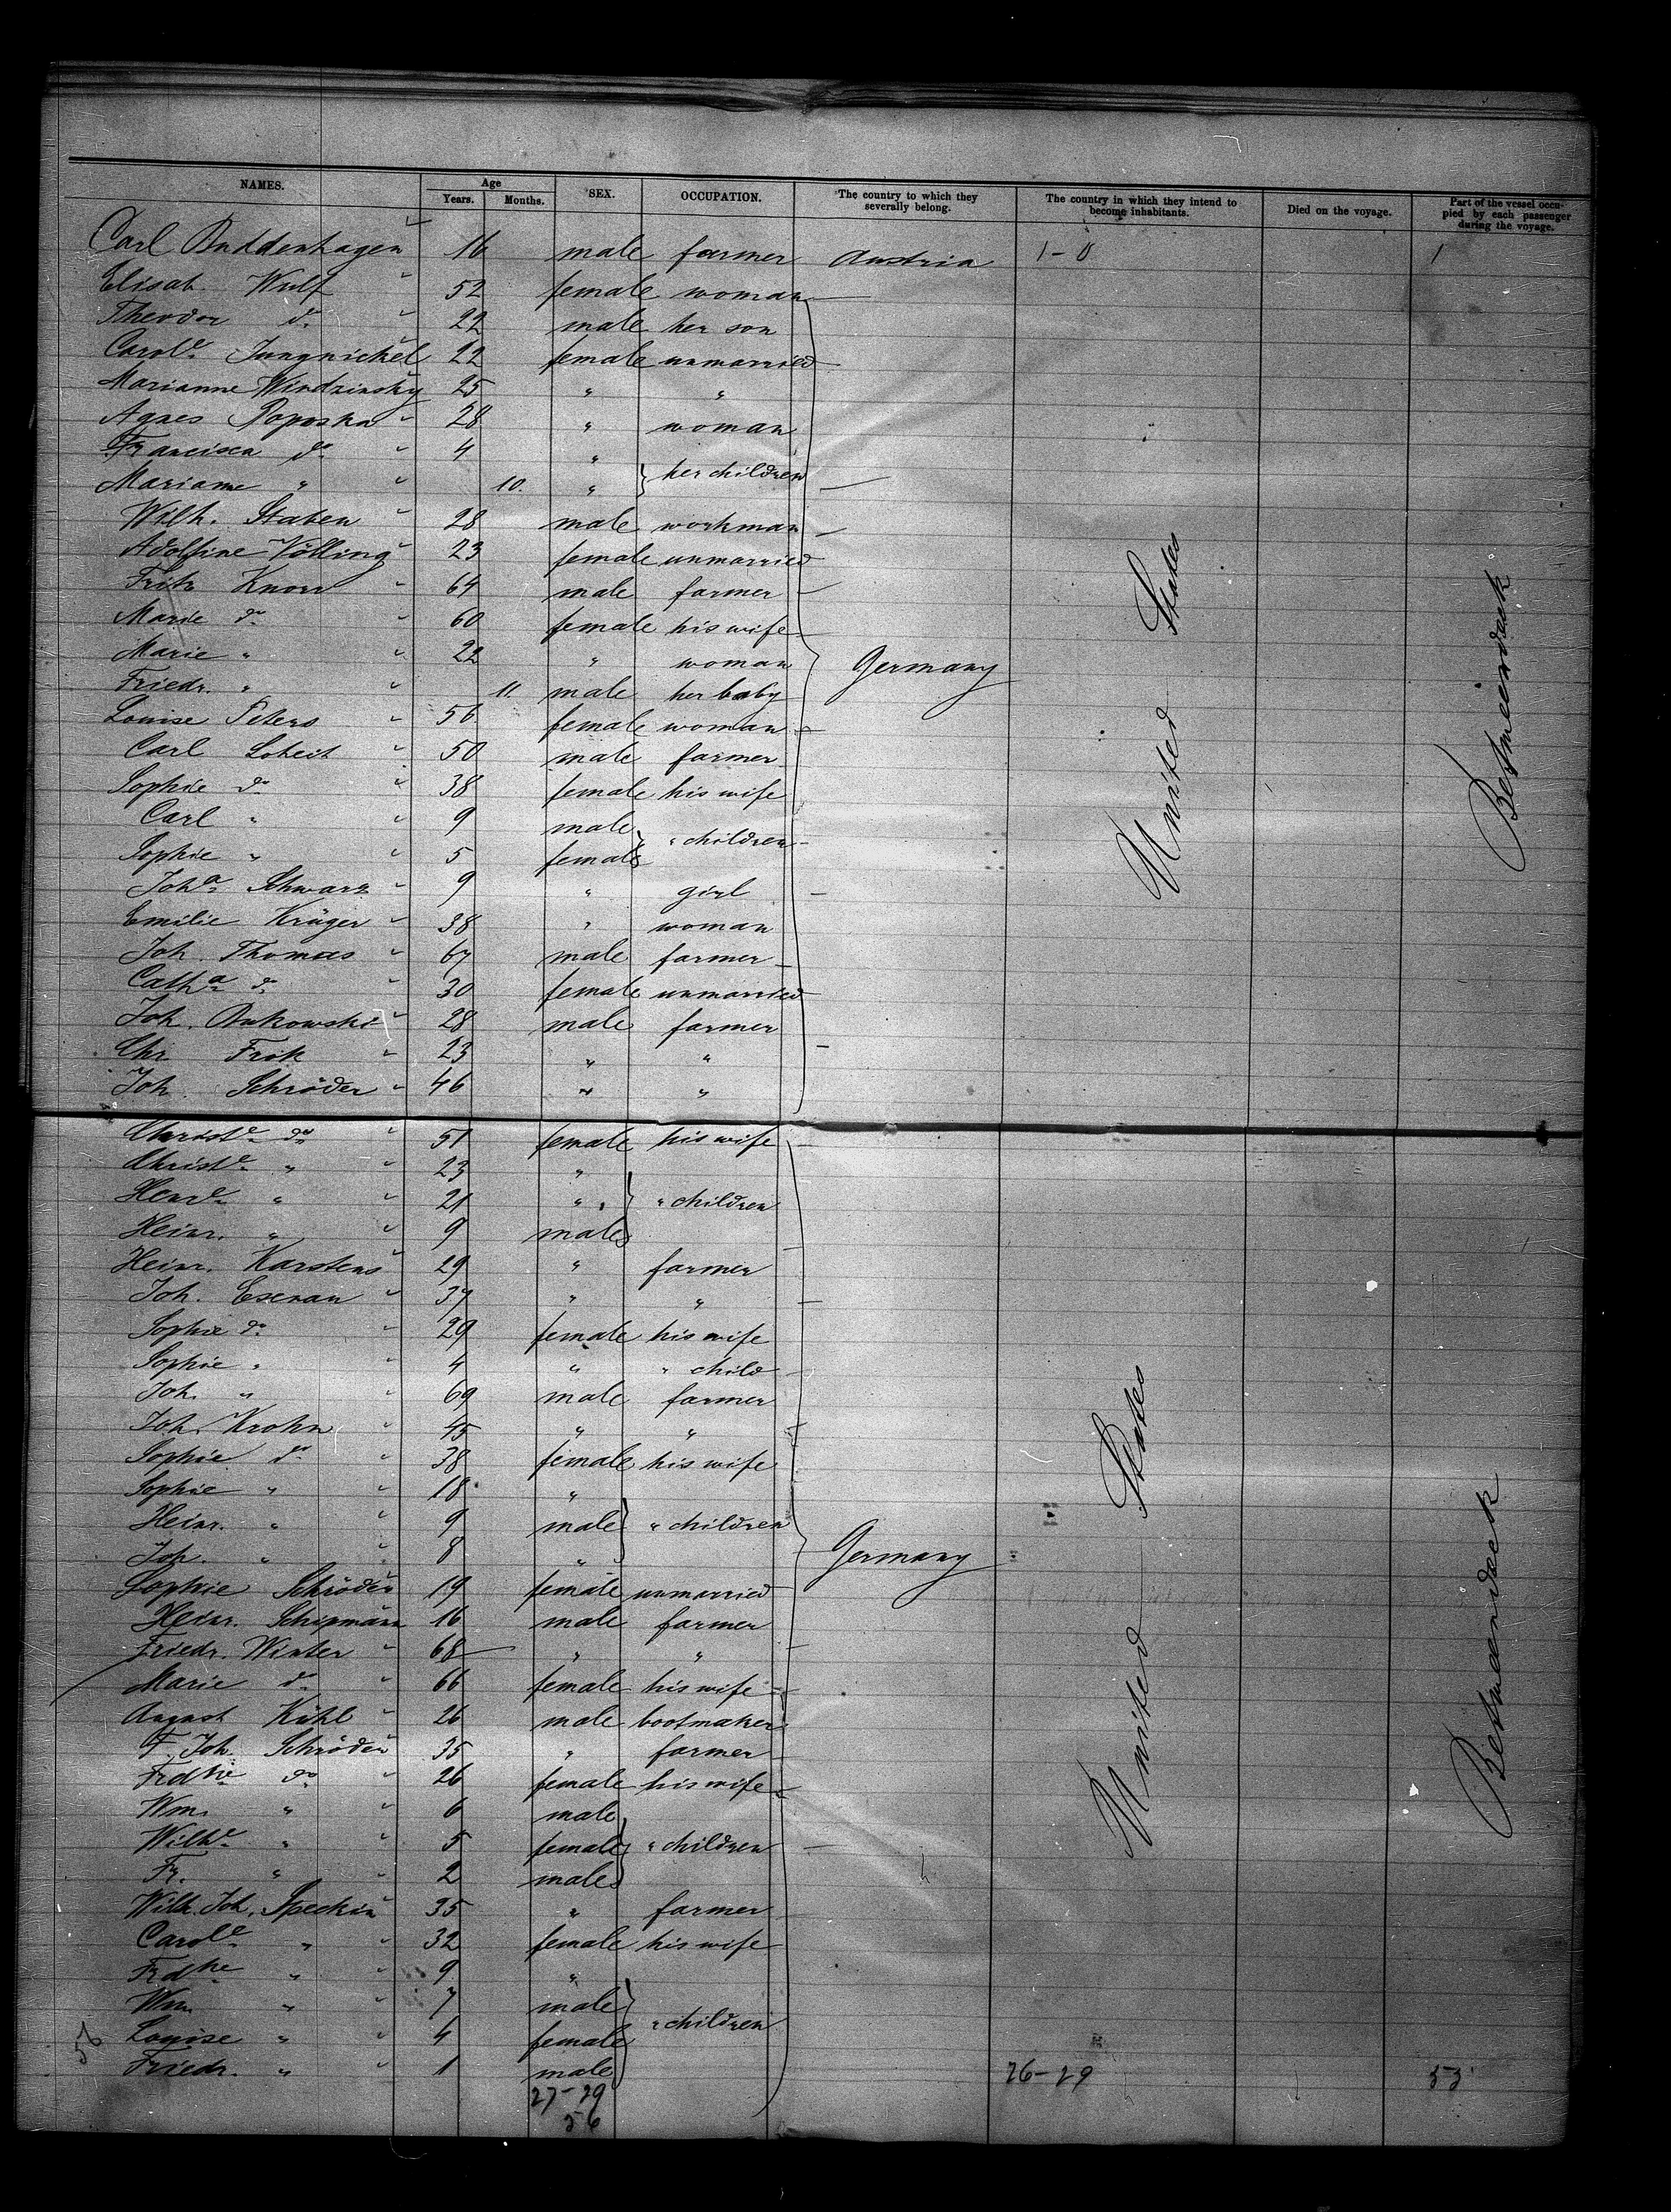 NAMES. Age Years. Months. SEX. OCCUPATION. The country to which they severally belong. The country in which they intend to become inhabitants. Died on the voyage. Part of the vessel occupied by each passenger during the voyage.
Carl Buddenhagen 16 male farmer Austria 1-0 1
Elisab. Wulf 52 female woman
Theodor do. 22 male her son
Carole. Jungnickel 22 female unmarried
Marianne Windzinsky 25 " "
Agnes Poposka 28 " woman
Francisca do. 4 "
Mariane " 10. " her children
Wilh. Staben 28 male workman
Adolfine Völling 23 female unmarried
Fritz Knorr 64 male farmer
Marie do. 60 female his wife
Marie " 22 " woman Germany
Friedr. " 11. male her baby
Louise Peters 56 female woman
Carl Loheit 50 male farmer
Sophie do. 38 female his wife
Carl " 9 male
Sophie " 5 female " children
Joha. Schwarz 9 " girl
Emilie Krüger 38 " woman
Joh. Thomas 67 male farmer
Catha. do. 30 female unmarried
Joh. Bukowski 28 male farmer
Chr Frik 23 " "
Joh. Schröder 46 " "
United States
Christe. do. 51 female his wife
Christe. " 23 "
Henre. " 21 " " children
Heinr. " 9 male
Heinr. Karstens 29 " farmer
Joh. Exeran 37 " "
Sophie do. 29 female his wife
Sophie " 4 " " child
Joh. " 69 male farmer
Joh. Krohn 45 " "
Sophie do. 38 female his wife
Sophie " 18 "
Heinr. " 9 male " children
Joh. " 8 " Germany
Sophie Schröder 19 female unmarried
Heinr. Schipmann 16 male farmer
Friedr. Winter 68 " "
Marie do. 66 female his wife
August Kühl 26 male bootmaker
F. Joh. Schröder 35 " farmer
Frdke do. 26 female his wife
Wm. " 6 male
Wilhe. " 5 female " children
Fr. " 2 male
Wilh. Joh. Speckin 35 " farmer
Carole. " 32 female his wife
Frdke " 9 "
Wm. " 7 male
Louise " 4 female " children
Friedr. " 1 male 26-29 55
United States
Betweendeck
27-29
56
56